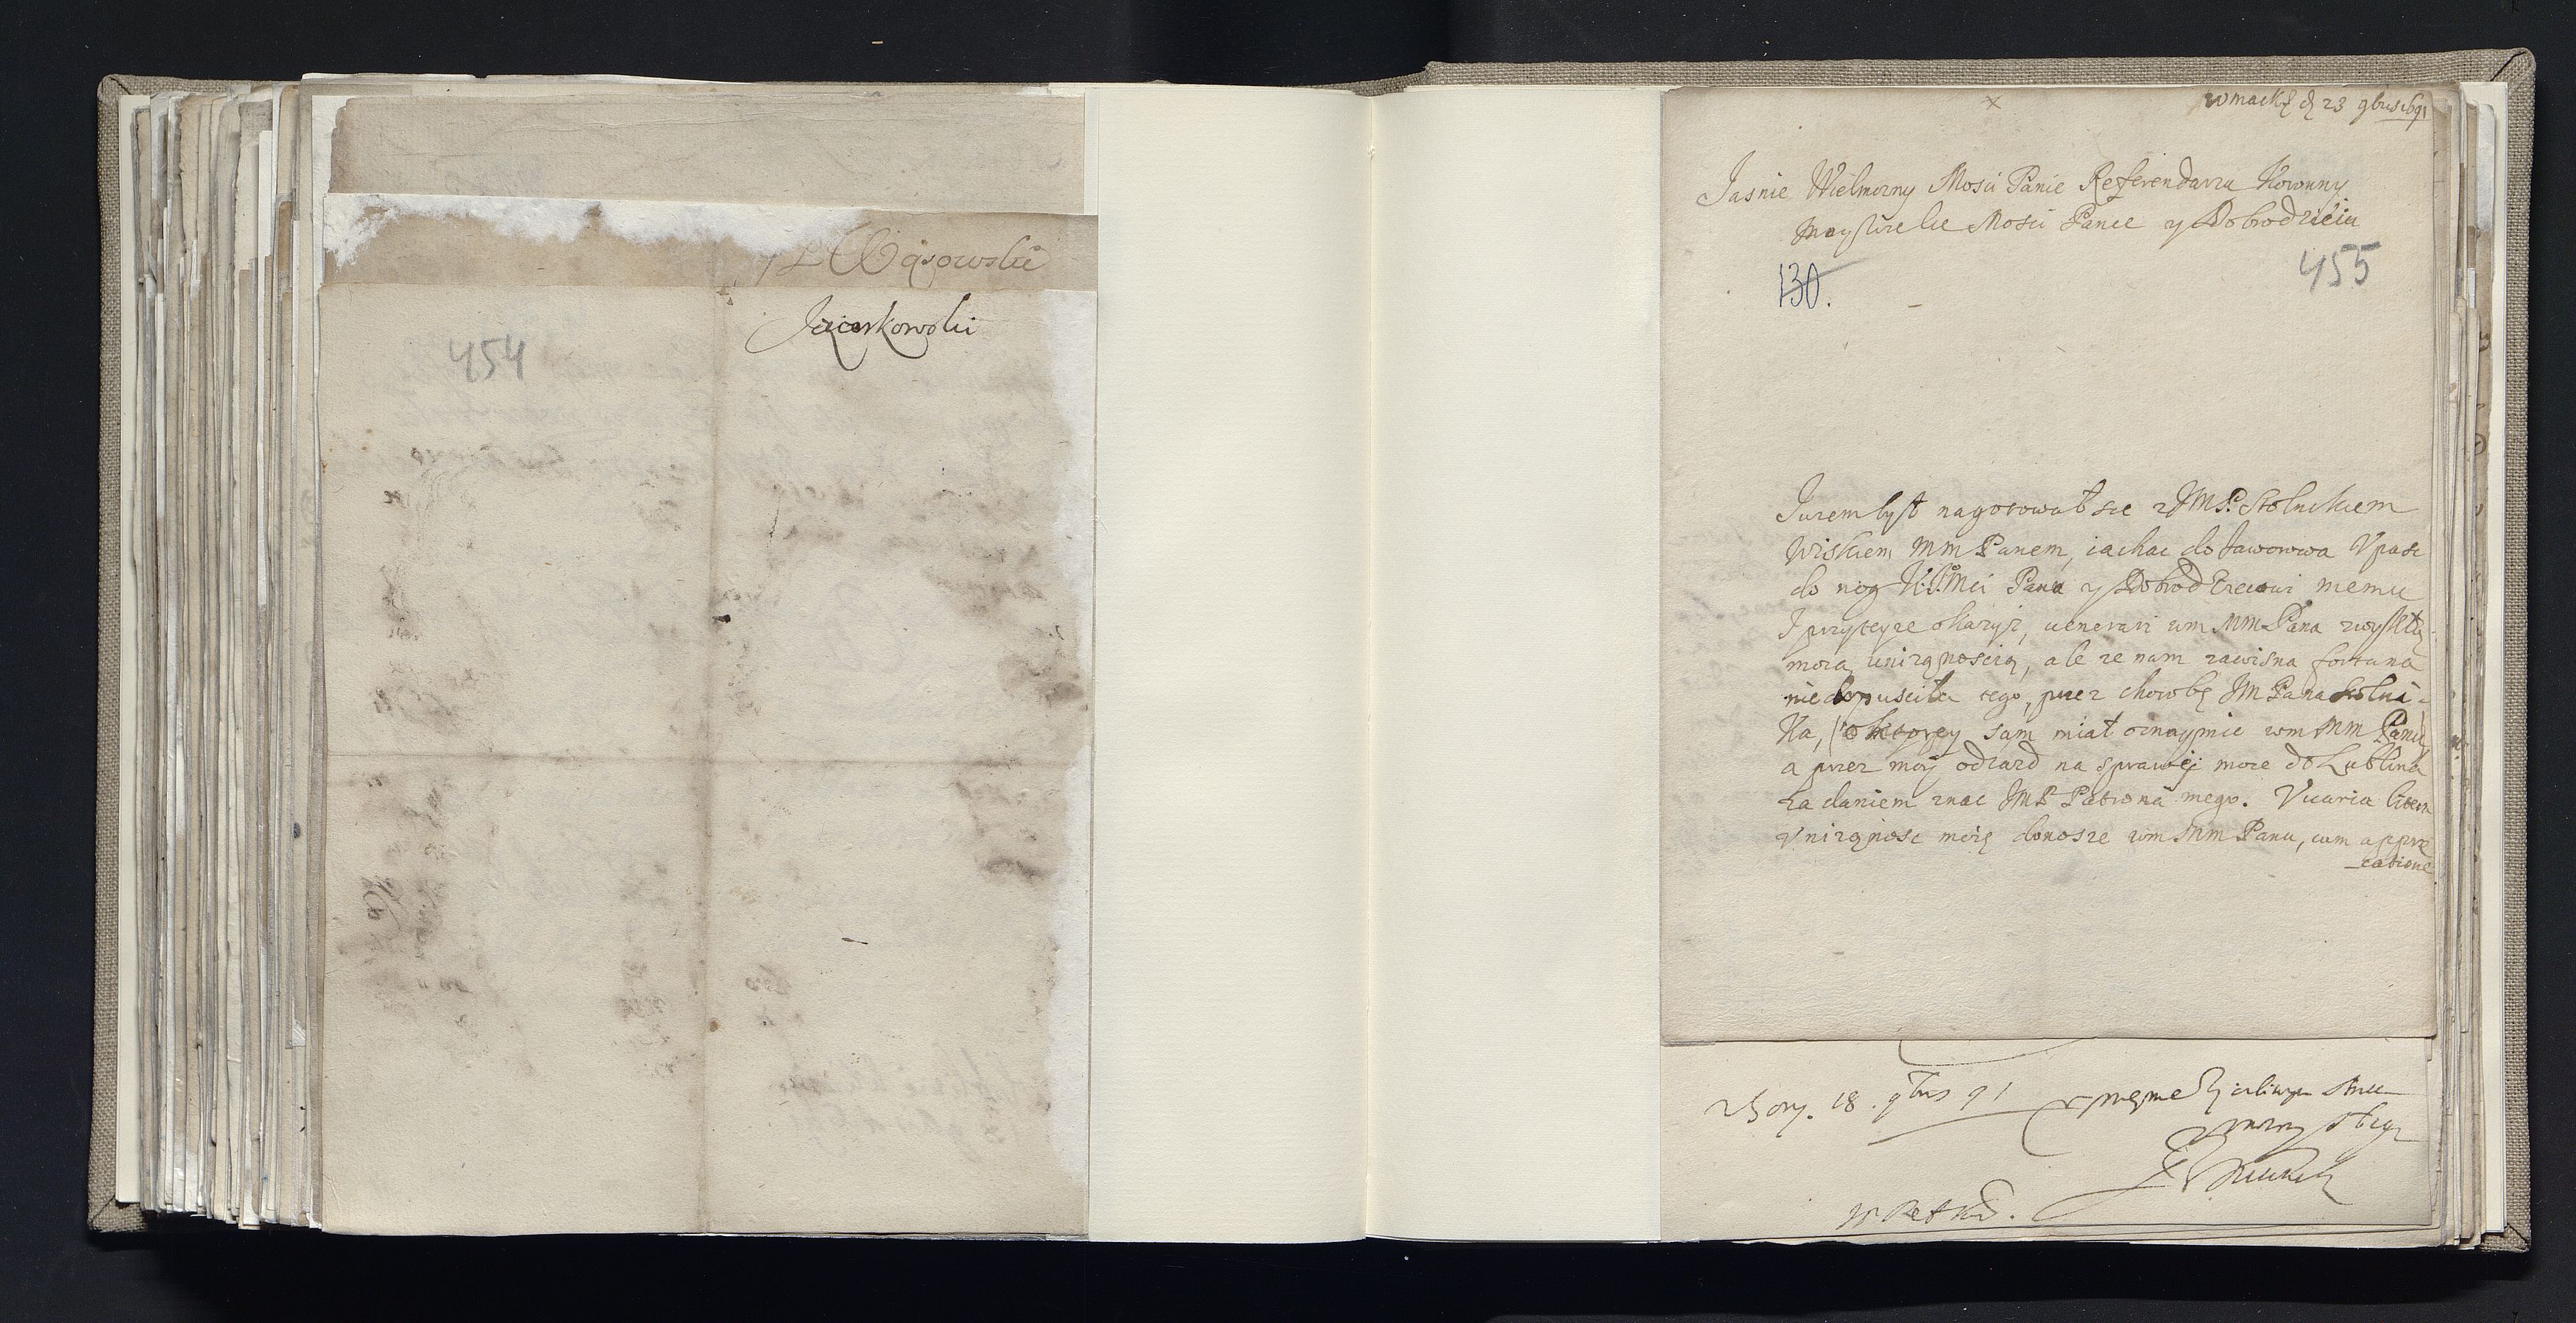 JP Wąsowski
Jeziorkowski
454
w macky d 23 9bris 1691
Jasnie Wielmozny Mosci Panie Referendarzu Koronny
Moy wielce Mosci Panie y Dobrodzieiu
130.
455
Iuzem był nagotował sie z JMP. Stolnikiem
Wiskiem MM Panem, iachac do Jaworowa Vpasc
do nog K.J.Mci Panu y Dobrodzieiowi memu
I przy teyze okazyi, venerari wm MM Pana zwykłą
moią unizonoscią, ale ze nam zawisna fortuna
nie dopusciła tego, przez chorobę JM Pana Stolni-
ka, (o ktorey sam miał oznaymic wm MM Panu)
a przez moy odiazd na sprawę moie do Lublina
za daniem znac JMP Patrona mego. Vicaria litera
vnizonosc moię donosze wm MM Panu, cum appre
catione
18. 9bris 91